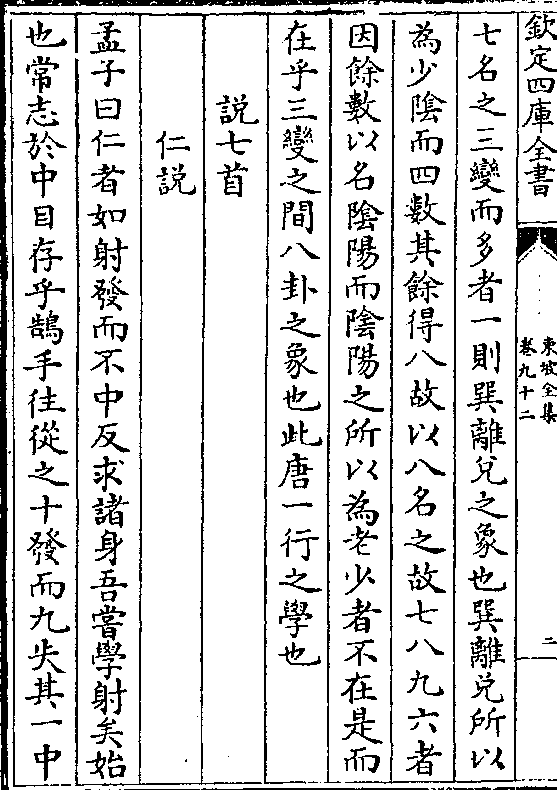 欽定四庫全書
東坡全集
卷九十二
二
七名之三變而多者一則巽離兌之象也巽離兌所以
為少陰而四數其餘得八故以八名之故七八九六者
因餘數以名陰陽而陰陽之所以為老少者不在是而
在乎三變之間八卦之象也此唐一行之學也
說七首
仁説
孟子曰仁者如射發而不中反求諸身吾嘗學射矣始
也常志於中目存乎鵠手往從之十發而九失其一中